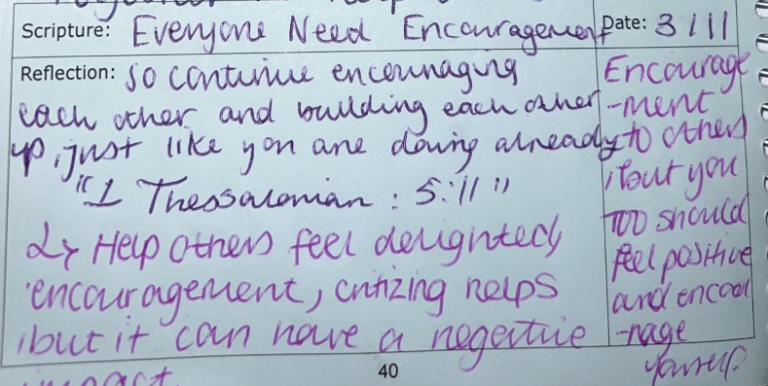 Scripture: Everyone Need Encouragement
Date: 3/11
Reflection: so continue encounaging
each other and building each other
up, just like you are doing already
"1 Thessalonian : 5:11"
2> Help others feel delightedly
encouragement, critizing helps
, but it can have a negative
impact.
Encourage
-ment
to others
, but you
too should
feel positive
and encou
-rage
yourself.
40